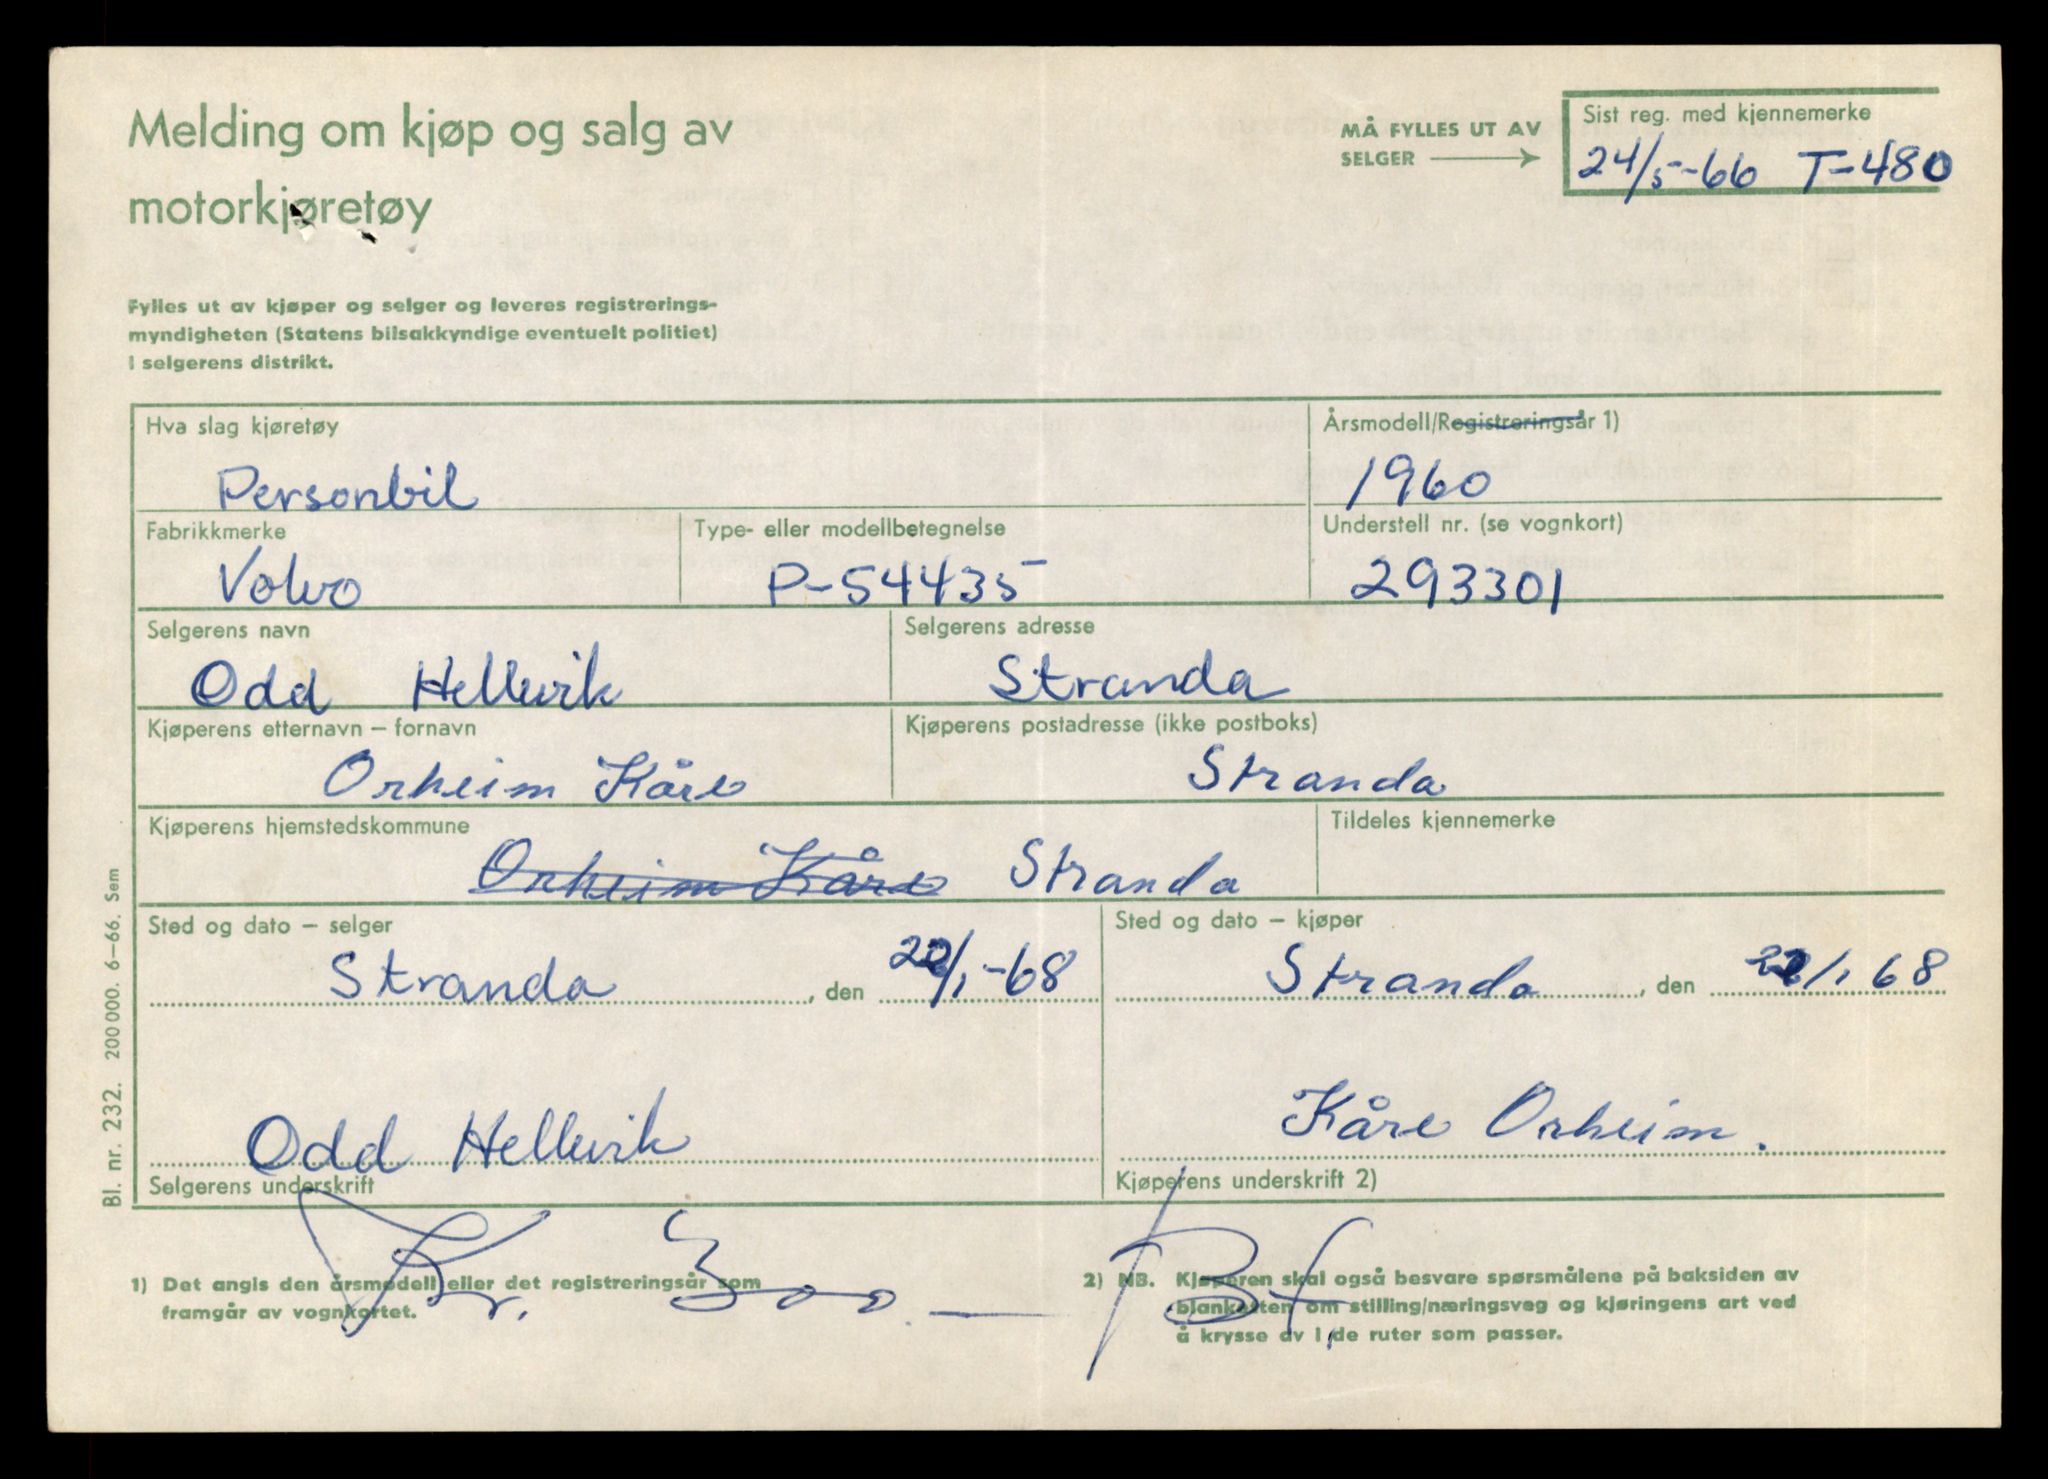 Melding om kjøp og salg av
motorkjøretøy
MÅ FYLLES UT AV
SELGER
Sist reg. med kjennemerke
24/5-66 T-480
Fylles ut av kjøper og selger og leveres registrerings-
myndigheten (Statens bilsakkyndige eventuelt politiet)
i selgerens distrikt.
Hva slag kjøretøy
Personbil
Årsmodell/Registreringsår 1)
1960
Fabrikkmerke
Volvo
Type- eller modellbetegnelse
P-54435
Understell nr. (se vognkort)
293301
Selgerens navn
Odd Hellevik
Selgerens adresse
Stranda
Kjøperens etternavn – fornavn
Orheim Kåre
Kjøperens postadresse (ikke postboks)
Stranda
Kjøperens hjemstedskommune
Orheim Kåre Stranda
Tildeles kjennemerke
Sted og dato – selger
Stranda, den /1-68
Sted og dato – kjøper
Stranda, den /1 68
Odd Hellevik
Selgerens underskrift
Kåre Orheim.
Kjøperens underskrift 2)
Kr. 300.— 
1) Det angis den årsmodell eller det registreringsår som
framgår av vognkortet.
2) NB. Kjøperen skal også besvare spørsmålene på baksiden av
blanketten om stilling/næringsveg og kjøringens art ved
å krysse av i de ruter som passer.
Bl. nr. 232. 200 000. 6–66. Sem